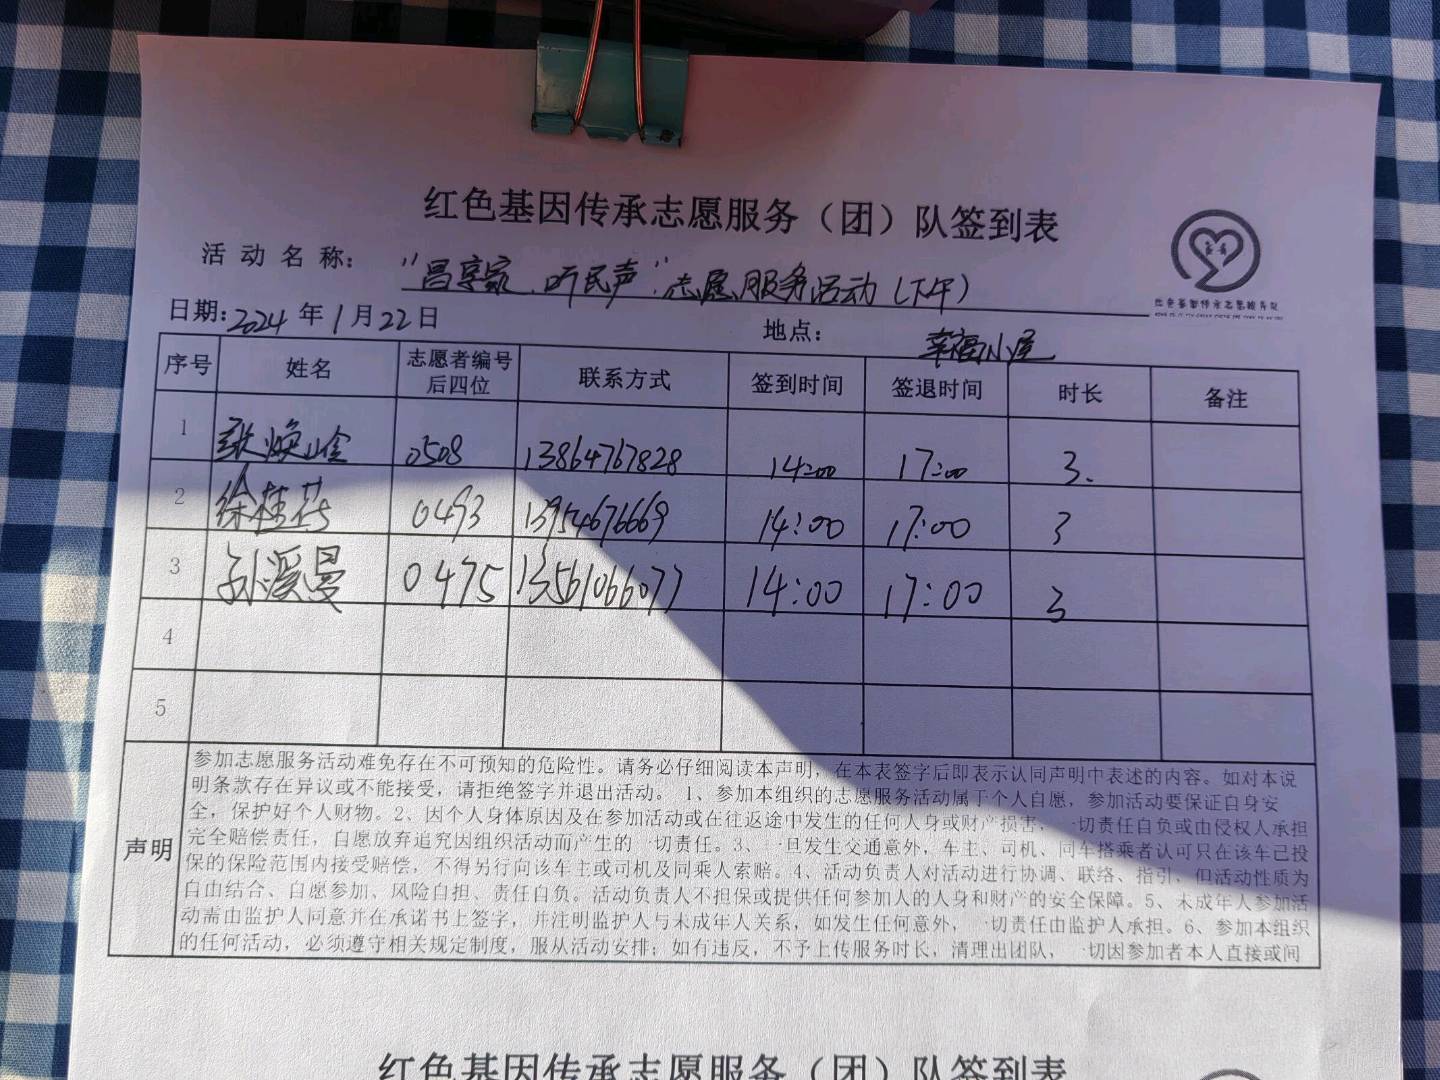 红色基因传承志愿服务（团）队签到表
活动名称：“昌享家、听民声”志愿服务活动（下午）
日期：2024年1月22日 地点：幸福小屋
序号 姓名 志愿者编号后四位 联系方式 签到时间 签退时间 时长 备注
1 张焕峰 0508 13864767828 14:00 17:00 3.
2 徐桂芸 0493 13954676669 14:00 17:00 3
3 孙溪曼 0475 13561066077 14:00 17:00 3
4
5
声明
参加志愿服务活动难免存在不可预知的危险性。请务必仔细阅读本声明，在本表签字后即表示认同声明中表述的内容。如对本说
明条款存在异议或不能接受，请拒绝签字并退出活动。 1、参加本组织的志愿服务活动属于个人自愿，参加活动要保证自身安
全，保护好个人财物。2、因个人身体原因及在参加活动或在往返途中发生的任何人身或财产损害，一切责任自负或由侵权人承担
完全赔偿责任，自愿放弃追究因组织活动而产生的一切责任。3、一旦发生交通意外，车主、司机、同车搭乘者认可只在该车已投
保的保险范围内接受赔偿，不得另行向该车主或司机及同乘人索赔。4、活动负责人对活动进行协调、联络、指引，但活动性质为
自由结合、自愿参加、风险自担、责任自负。活动负责人不担保或提供任何参加人的人身和财产的安全保障。5、未成年人参加活
动需由监护人同意并在承诺书上签字，并注明监护人与未成年人关系，如发生任何意外，一切责任由监护人承担。6、参加本组织
的任何活动，必须遵守相关规定制度，服从活动安排；如有违反，不予上传服务时长，清理出团队，一切因参加者本人直接或间
红色基因传承志愿服务（团）队签到表